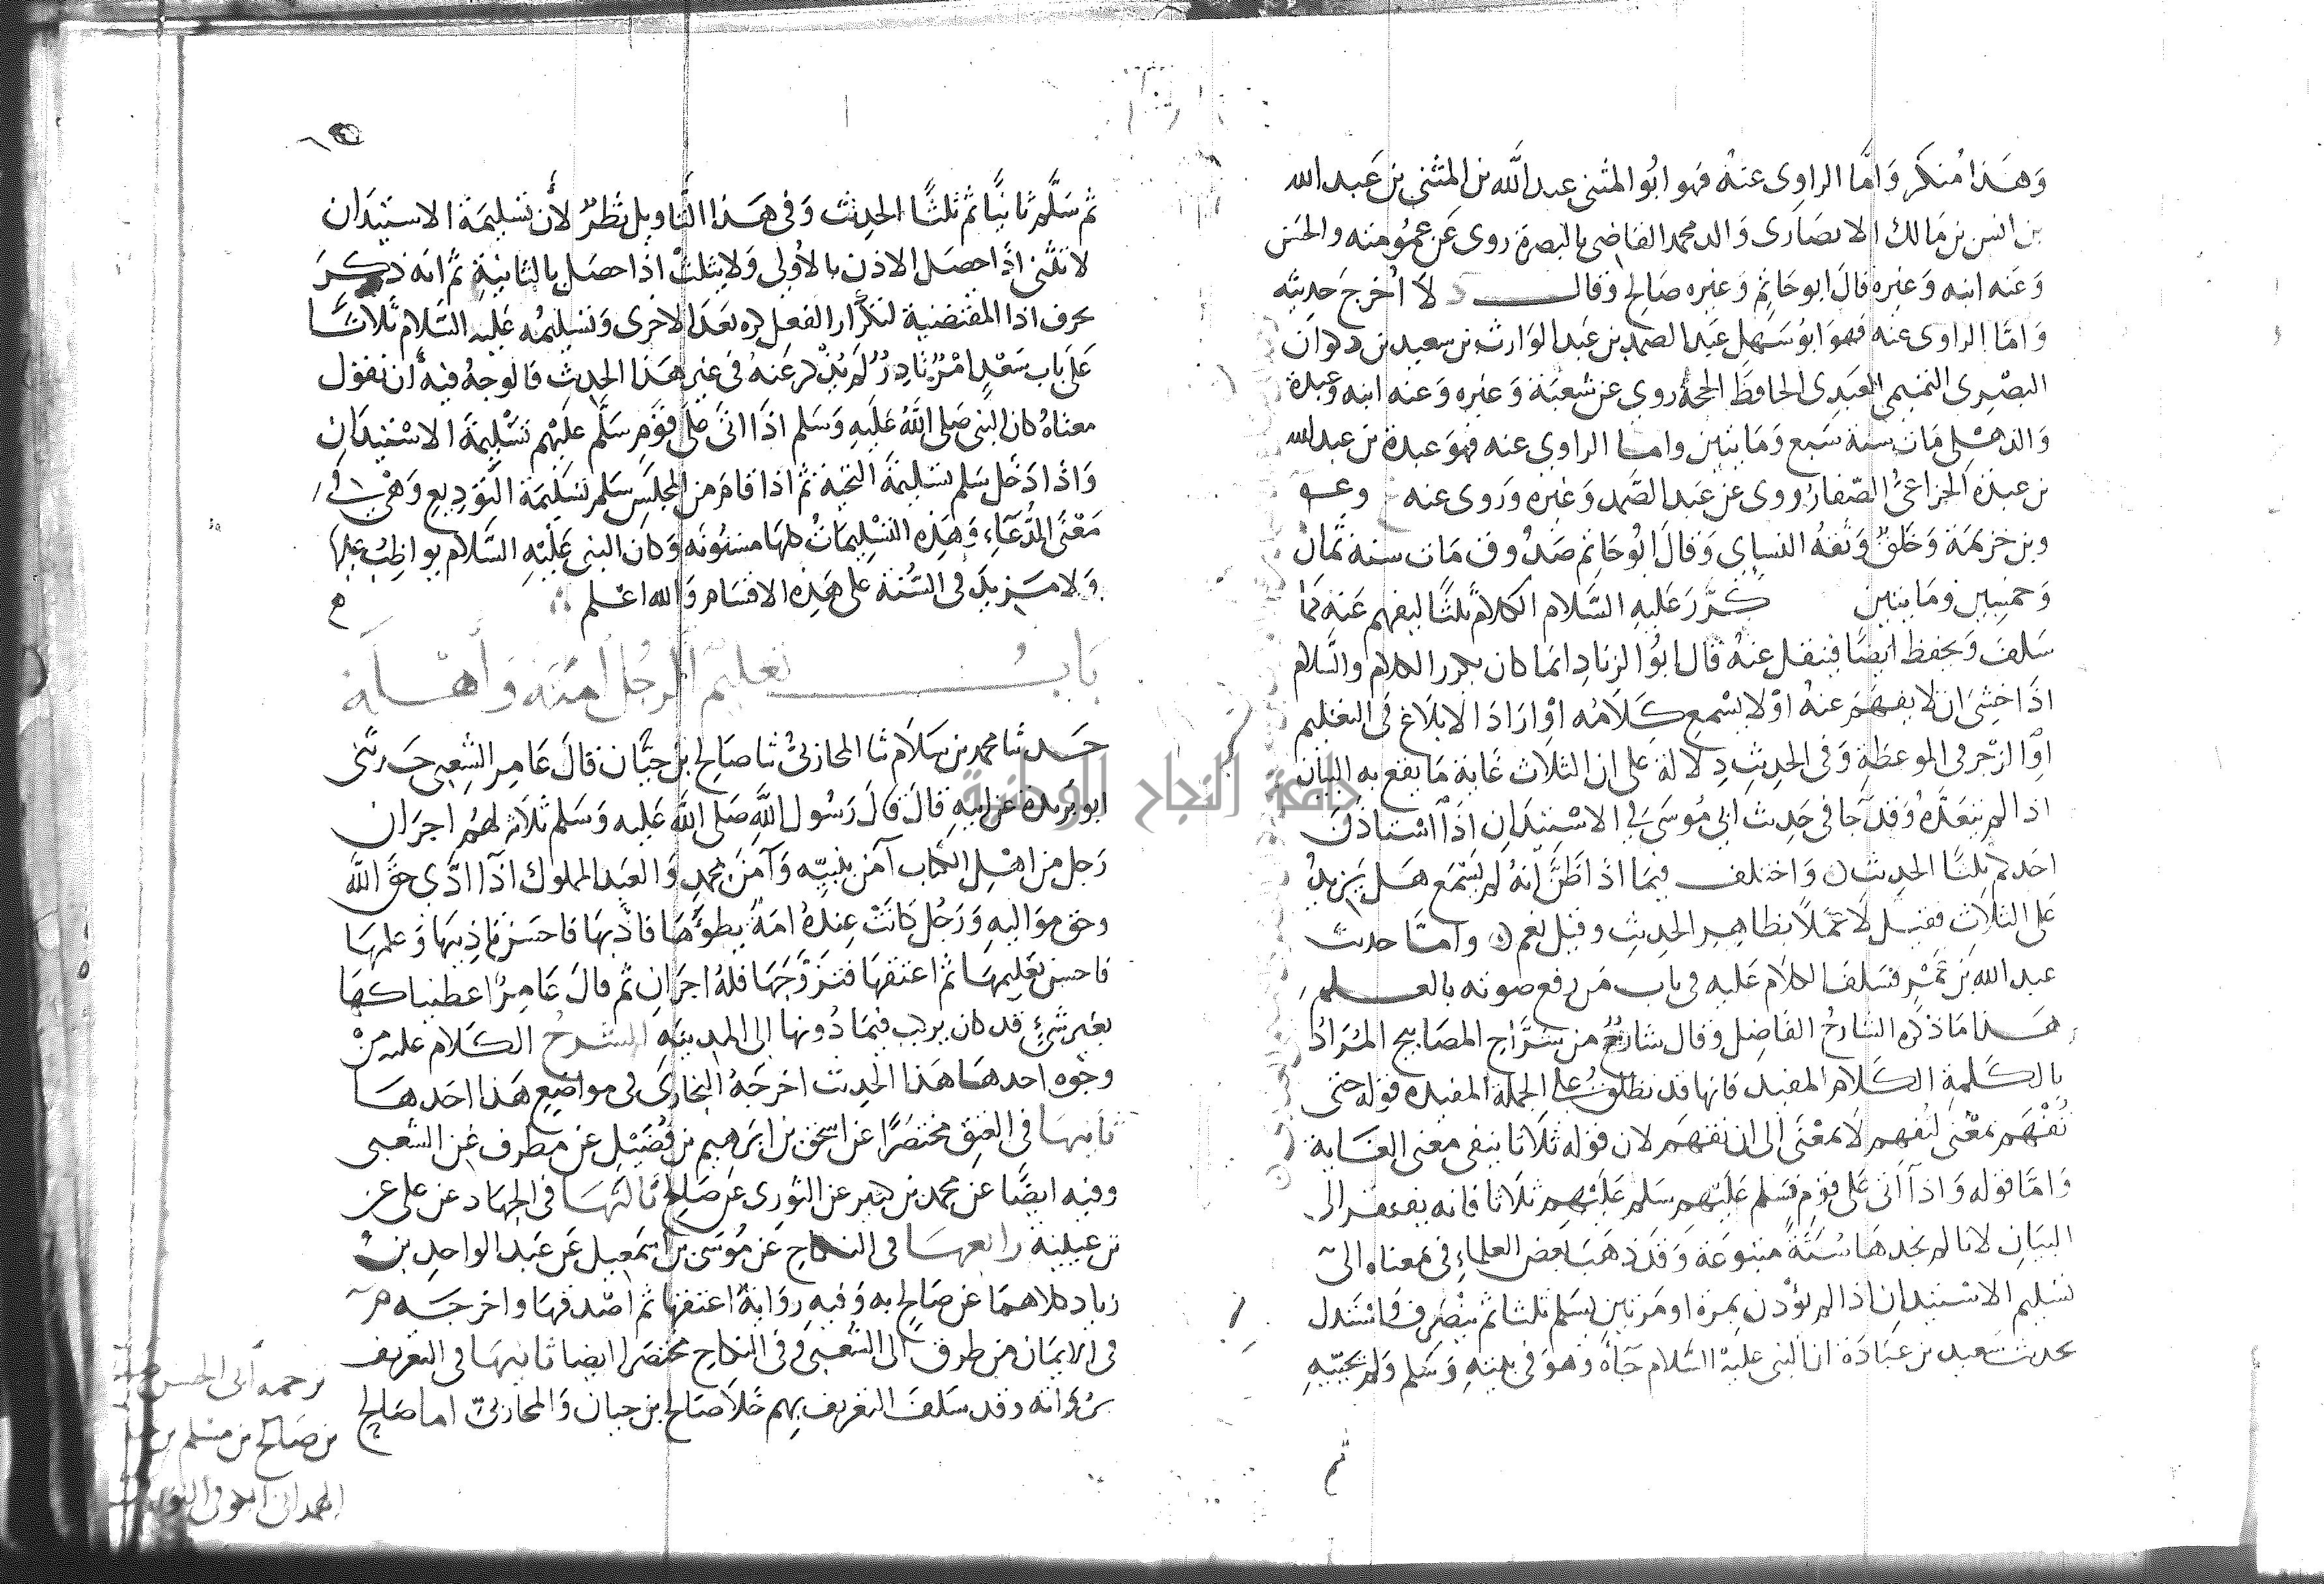 وَهَذا مُنكَر وَامَّا الراوِى عنهُ فهو ابُو المثنى عبد الله بن المثنى بن عَبد الله
بن انس بن مَالك الانصَارى وَالد محمد القاضى بالبصرة روى عَن عمُومته والحسَن
وَعَنه ابنه وَغيره قالَ ابو حَاتِم وَغيره صَالح وقال لَا اُخرج حَديثه
وَامَّا الراوى عنه فهوَ ابوُ سَهل عَبد الصمد بن عَبد الوَارث بن سعيد بن ذكوَان
البصْرِى التميمى العَبدِى الحافظ الحجة روى عن شعبَة وَغيره وَعنه ابنه وَعبدة
وَالذهْلى مَات سنة سَبع وَمَايتين وامـا الراوى عنه فهوَ عبدة بن عبد الله
بن عبدة الخزاعىُّ الصّفارُ روى عن عَبد الصَّمد وَغيره وَروى عنه
وبن خزيمَة وَخَلقٌ وَثقهُ النساى وَقالَ ابُو حَاتم صَدُوق مَات سنة ثمَان
وَخمسِين ومَايتين كرَّرَ عَليه السَّلام الكلامَ ثلثًا ليفهم عَنه كما
سَلف وَيحفظ ايضًا فينقل عنهُ قال ابُو الزنادِ انما كان يكرر الكلام والسَّلام
اذَا خشِىَ ان لا يفهَم عنهُ اوْ لا يسْمع كلَامُه اوْ ارَادَ الابلَاغ فى التعْليم
اوِ الزّجر فى الموعظةِ وَفى الحدِيثِ دِلَالة على ان الثلاث غَاية مَا يقع به البيَان
اذا لم يتعَدّهُ وَقد جَا فى حَديث ابى مُوسَى فى الاسْتيذان اذَا استاذنَ
احَدكم ثلثًا الحديث وَاختلف فيمَا اذَا ظنَّ انهُ لم يَسْمَع هَل يَزيدُ
عَلى الثلاثِ فقيل لَا عمَلًا بظاهِر الحدِيثِ وقيل نعم وامَّا حديث
عبد الله بن عَمْرٍ فسَلفَ الكلام عَليه فى بَاب مَن رفع صوته بالعـلم
هَـذا مَا ذكرَه الشارحُ الفاضِل وقال شارحٌ من شرّاحِ المصَابيح المُرَادُ
بالكَلمةِ الكَلام المفيد فانها قد تطلقُ على الجملة المفيده قوله حتى
تُفْهَم بمعْنى لتُفهم لَا بمعْنَى الى ان تفهَم لان قوله ثلَاثا ينفى معنى الغَاية
وَامَّا قوله وَاذا آتى عَلى قوْمٍ فسَلم عَليْهم سَلم عَليْهِم ثلَاثا فانه يفتقر الى
البيَانِ لانا لم نجدهَا سُنَّةً متبُوعَة وَقد ذهَبَ بَعض العلماءِ فى معناه الى
تسْليم الاسْتيذانِ اذا لم يؤْذن بمرَة او مَرتين يسَلم ثلثا ثم ينْصَرف فاسْتدل
بحديث سَعد بن عبَادَة ان النبى عليهْ السَّلام جَآهُ وَهوَ فى بيتهِ وَسَلم وَلم يُجبْهِ
ثم
ثم سَلّم ثانيًا ثم ثلثًا الحديث وَفى هَذا التاويل نظرٌ لأن تسْليمَة الاستيذان
لا تثنى اذا حصَل الاذن بالاُولى وَلا يثلث اذا حصَل بالثانيةِ ثم انه ذكرَ
بحرف اذا المقتضية لتكرَار الفعل كره بَعَد الاخرى وَتسْليمُه عَليه السَّلام ثلَاثا
عَلى بَاب سَعْدٍ امْرٌ نادِرٌ لم يُذكر عَنهُ فى غيْر هَذا الحديثِ فالوجهُ فيه أن نقول
معناهُ كان النّبىُ صَلى الله عَليهِ وَسَلم اذَا اتى على قوْمٍ سَلَّم عَليْهم تسْليمَة الاسْتيذان
وَاذَا دَخل سَلم تسْليمَة التحية ثم اذا قامَ من المجلسِ سَلم تسْليمَة التوْدِيع وَهى فى
مَعْنَى الدُّعَآءِ وَهَذِه التسْليمَاتُ كلهَا مسنُونَه وَكان النبى عَليْهِ السَّلام يواظبُ عليها
وَلا مَزيدَ فى السُّنة على هَذِه الاقسَامِ وَالله اعْـلم
بَابُ تعْليم الرجُل أمَتَه وَأهْـلَه
حَـدثنا محمد بن سَلَام ثنا المحاربىُّ ثنا صَالح بن حَيَّان قالَ عَامر الشعبى حَدثنى
ابو بُردة عن ابيهِ قالَ قالَ رَسُول اللهِ صَلى الله عَليه وَسَلم ثلَاثة لهُم اجرَان
رَجل من اهْلِ الكتاب آمَن بنبيّه وَآمَن بمحمدٍ وَالعَبد المملوك اذَآ ادَّى حَق الله
وحَق موَاليهِ وَرَجُل كانَتْ عِندهُ امَةٌ يطؤُهَا فادّبهَا فاحسَن تاديبهَا وَعلمهَا
فاحسن تعْليمهَا ثم اعتقهَا فتزَوَّجَهَا فلهُ اجرَانِ ثم قالَ عَامرٌ اعطينا كهَا
بغير شَىءٍ قد كان يركب فيمَا دُونها الى المدينةِ الشرحُ الكَلام عليه منْ
وجُوه احدهَا هَذا الحديث اخرجَهُ البخارى فى مواضِع هَذا احَدهَا
ثانيهَا فى العِتق مختصَرًا عن اسحق بن ابرَهيم بن فُضَيْل عن مطرف عَن الشعبى
وفيه ايضًا عن محمد بن كثير عن الثورى عن صَالح ثالثهَا فى الجهَاد عن على عن
بن عيينة رابعهَا فى النكاح عَن مُوسَى بن اسْمَعيل عَن عَبد الواحِد بنُ
زياد كلاهمَا عَن صَالح به وَفيهِ روَايةٌ اعتقهَا ثم اصْدقهَا واخرجَـه م
فى الايمَان من طرق الى الشعْبى وفى النكاح مختصَرا ايضا ثانيهَا فى التعْريف
برُوَاته وقد سَلفَ التعْريف بهم خَلَا صَالح بن حيان وَالمحاربىّ اما صَالح
ترجمه أبى الحسن
بن صَالح بن مسْلم بن
الهمدانى الكوفى الثورى
جامعة النجاح الوطنية